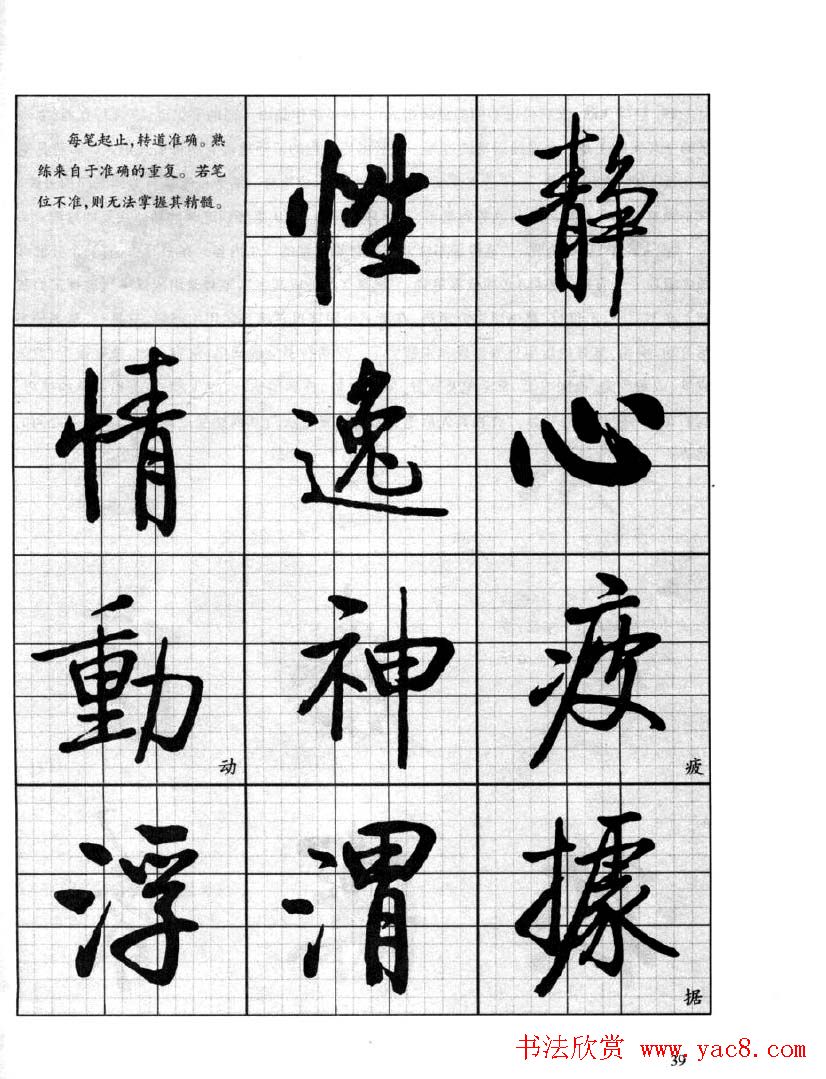 每笔起止,转道准确。熟
练来自于准确的重复。若笔
位不准,则无法掌握其精髓。
性静
情逸心
動神疲
动 疲
浮渭據
据
39
书法欣赏 www.yac8.com